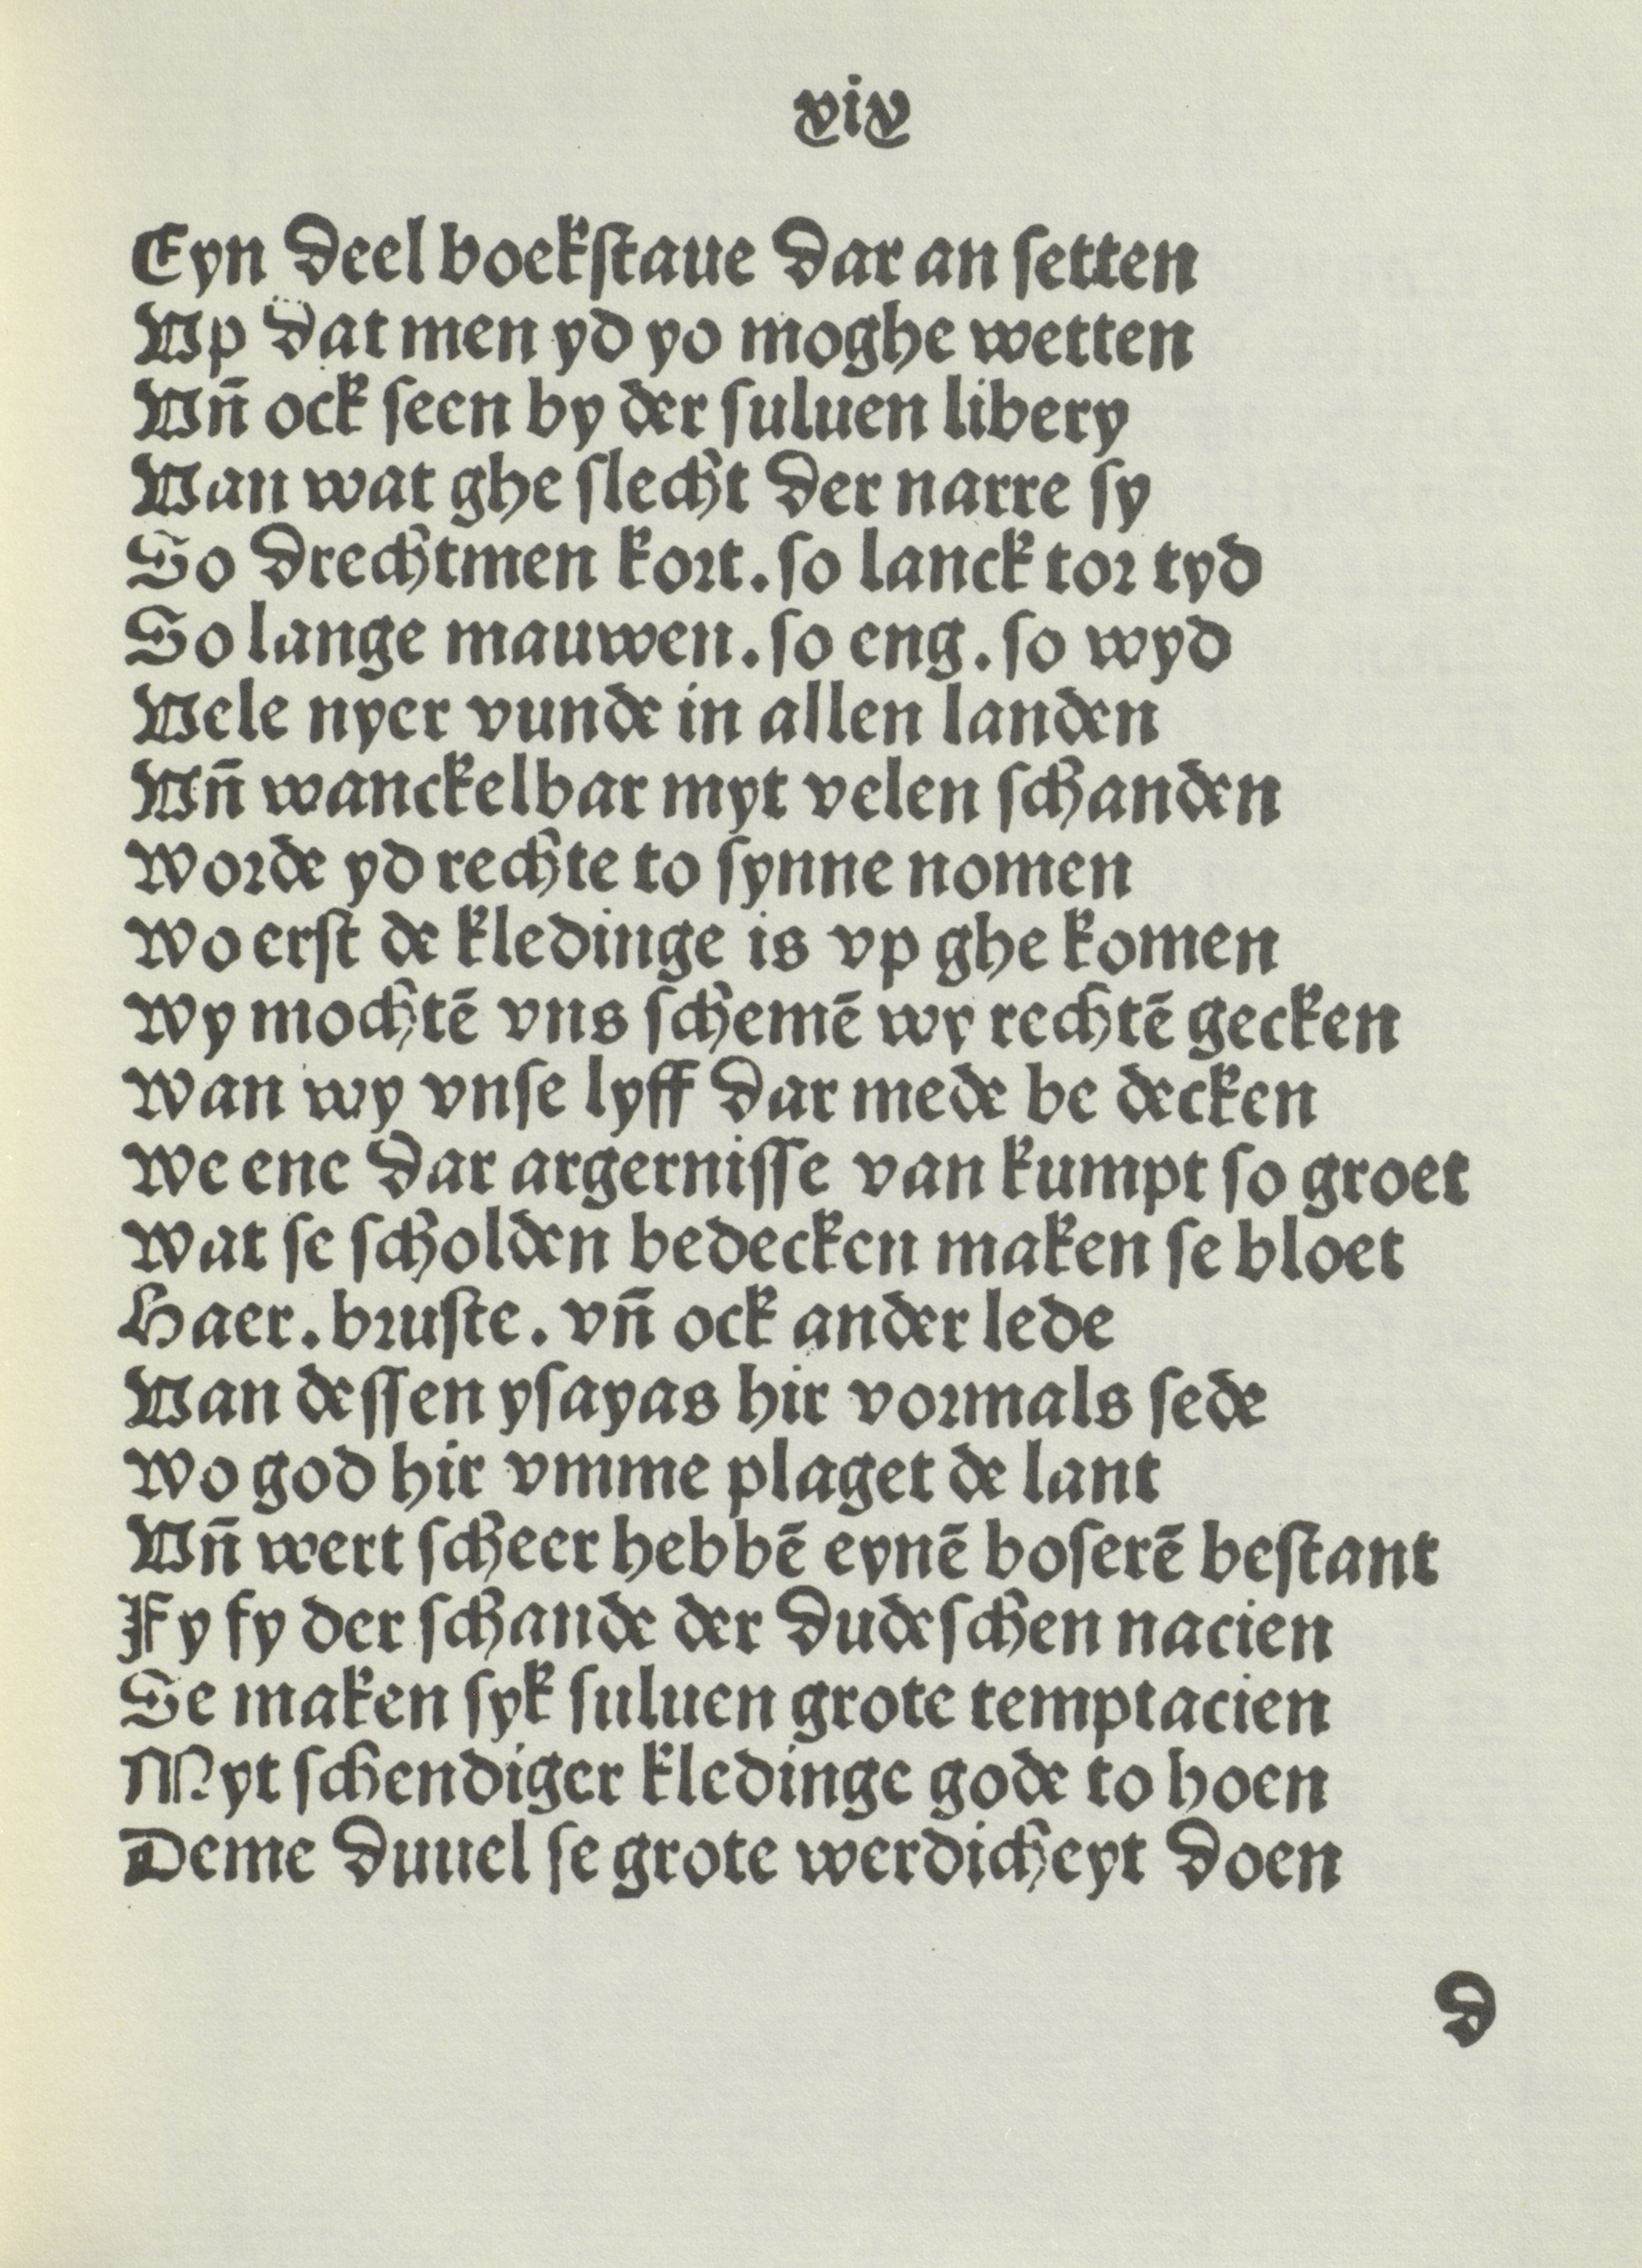 xix
Eyn deel boekſtaue dar an ſetten
Vp dat men yd yo moghe wetten
Vn̄ ock ſeen by der ſuluen libery
Van wat ghe ſlecht der narre ſy
So drechtmen koꝛt. ſo lanck toꝛ tyd
So lange mauwen. ſo eng. ſo wyd
Vele nyer vunde in allen landen
Vn̄ wanckelbar myt velen ſchanden
Woꝛde yd rechte to ſynne nomen
Wo erſt de kledinge is vp ghe komen
Wy mochtē vns ſchemē wy rechtē gecken
Wan wy vnſe lyff dar mede be decken
We ene dar argerniſſe van kumpt ſo groet
Wat ſe ſcholden bedecken maken ſe bloet
Haer. bꝛuſte. vn̄ ock ander lede
Van deſſen yſayas hir voꝛmals ſede
Wo god hir vmme plaget de lant
Vn̄ wert ſcheer hebbē eynē boſerē beſtant
Fy fy der ſchande der dudeſchen nacien
Se maken ſyk ſuluen grote temptacien
Myt ſchendiger kledinge gode to hoen
Deme duuel ſe grote werdicheyt doen
d